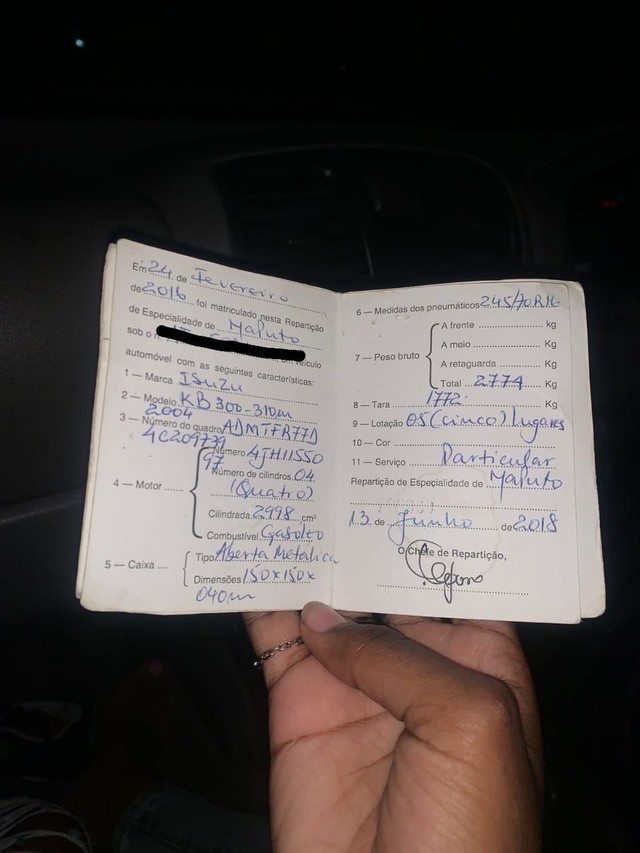 Em 24 de Fevereiro
de 2016 foi matriculado nesta Repartição
de Especialidade de Maputo
sob o n.
automóvel com as seguintes características:
1 — Marca ISUZU
2 — Modelo KB 300-310m
2004
3 — Número do quadro ADMTFR77D
4C209739
4 — Motor
Número 4JH11550
97
Número de cilindros 04
(Quatro)
Cilindrada 2998 cm³
Combustível Gasoleo
5 — Caixa
Tipo Aberta Metalica
Dimensões 150x150x
040m
6 — Medidas dos pneumáticos 245/70R16
7 — Peso bruto
A frente kg
A meio kg
A retaguarda Kg
Total 2774 Kg
8 — Tara 1772 Kg
9 — Lotação 05 (cinco) Lugares
10 — Cor
11 — Serviço Particular
Repartição de Especialidade de Maputo
13 de Junho de 2018
O Chefe de Repartição,